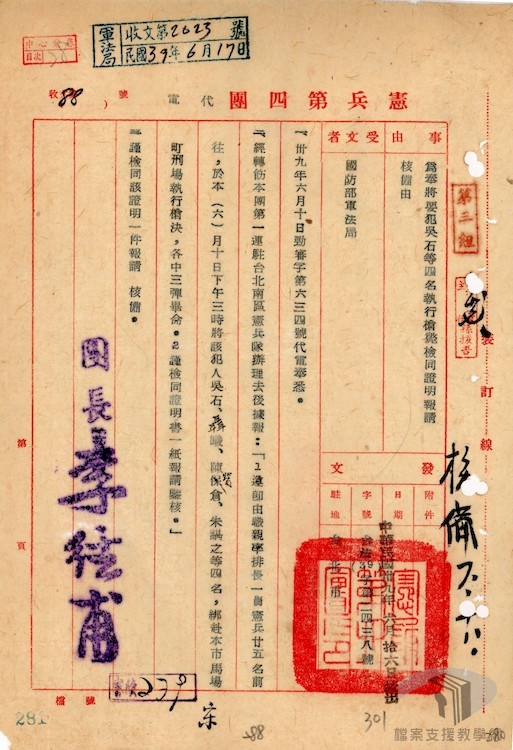 軍法局 收文第2023號
民國39年6月17日
目次
憲兵第四團代電
收 88 號
事由
為奉將要犯吳石等四名執行槍斃檢同證明報請
核備由
受文者
國防部軍法局
發文
附件
日期 中華民國卅九年六月拾六日發出
字號 (39)字第二四三八號
駐地 台北市
一、卅九年六月十日勁審字第六三四號代電奉悉。
二、經轉飭本團第一連駐台北南區憲兵隊辦理去後據報：「1遵即由職親率排長一員憲兵廿五名前
往，於本（六）月十日下午三時將該犯人吳石、聶曦、陳寶倉、朱諶之等四名，綁赴本市馬場
町刑場執行槍決，各中三彈畢命。2謹檢同證明書一紙報請鑒核。」
三、謹檢同該證明一件報請 核備。
團長
第三組
裝訂線
第 頁
檔號
239
281
88
301
檔案支援教學網